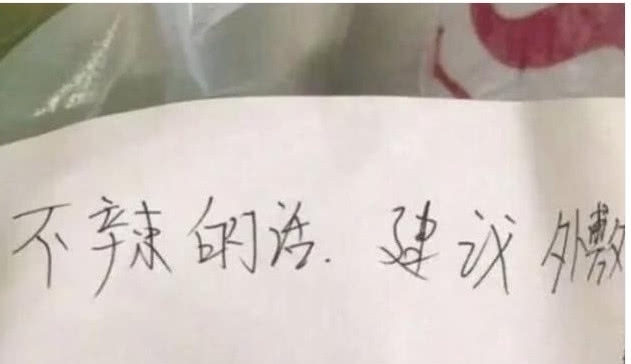 不辣的话.建议外敷